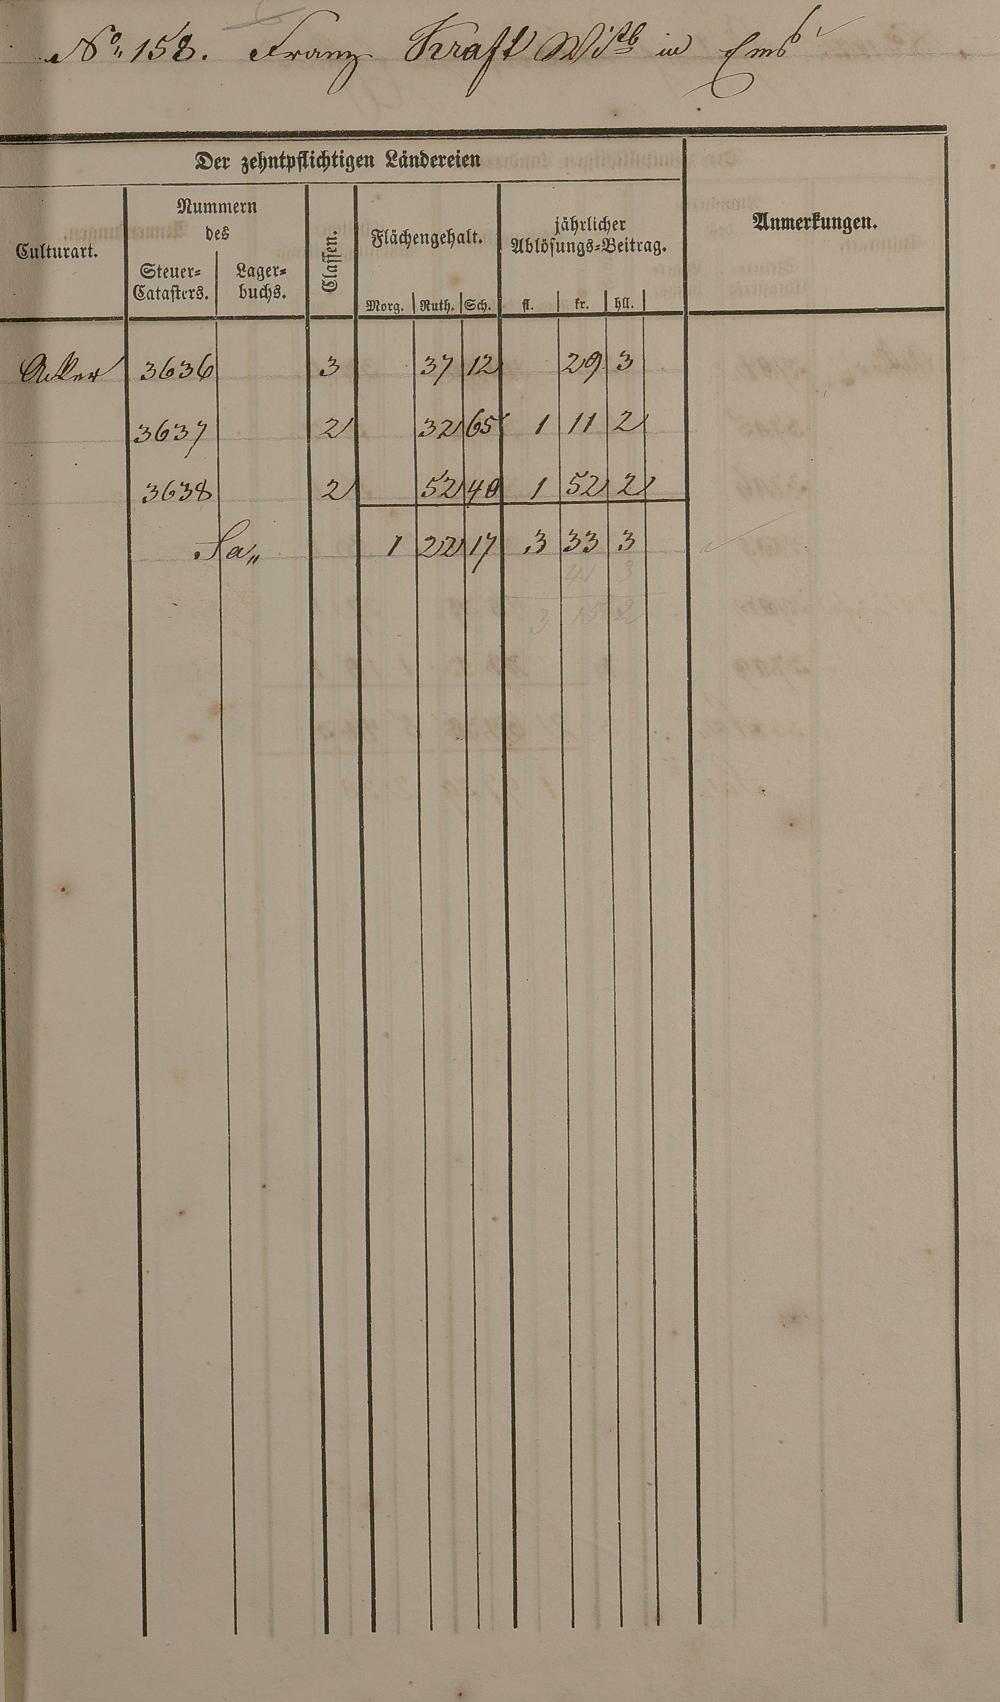 No. 158. Franz Kraft Wtb in Ems
Der zehntpflichtigen Ländereien
Culturart.
Nummern
des
Steuer=
Catasters.
Lager=
buchs.
Classen.
Flächengehalt.
Morg. Ruth. Sch.
jährlicher
Ablösungs=Beitrag.
fl. kr. hll.
Anmerkungen.
Acker 3636 3 37 12 29 3
3637 2 32 65 1 11 2
3638 2 52 40 1 52 2
Sa„ 1 22 17 3 33 3
41 3
3 15 2